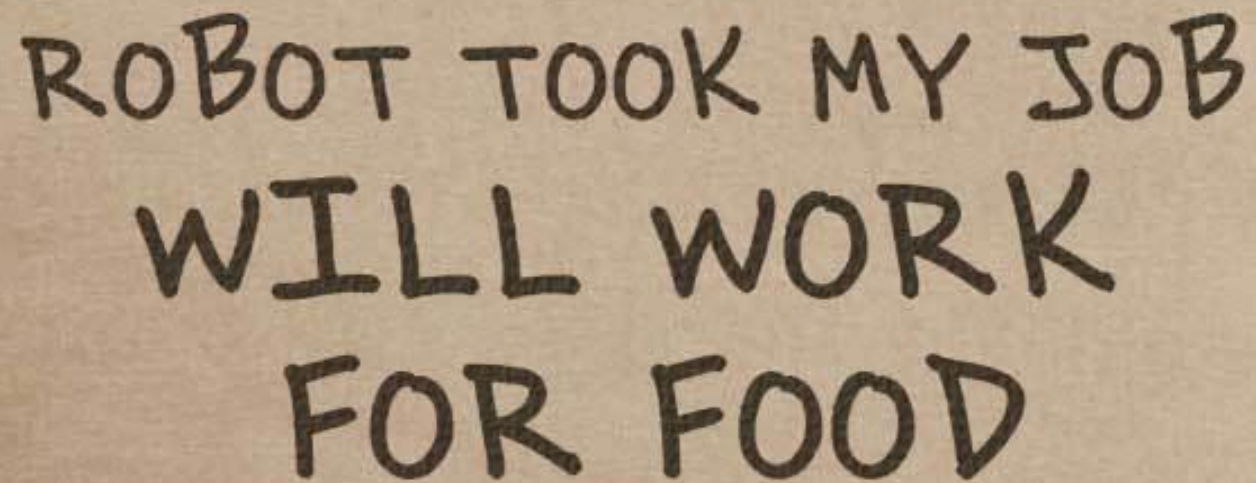 ROBOT TOOK MY JOB
WILL WORK
FOR FOOD